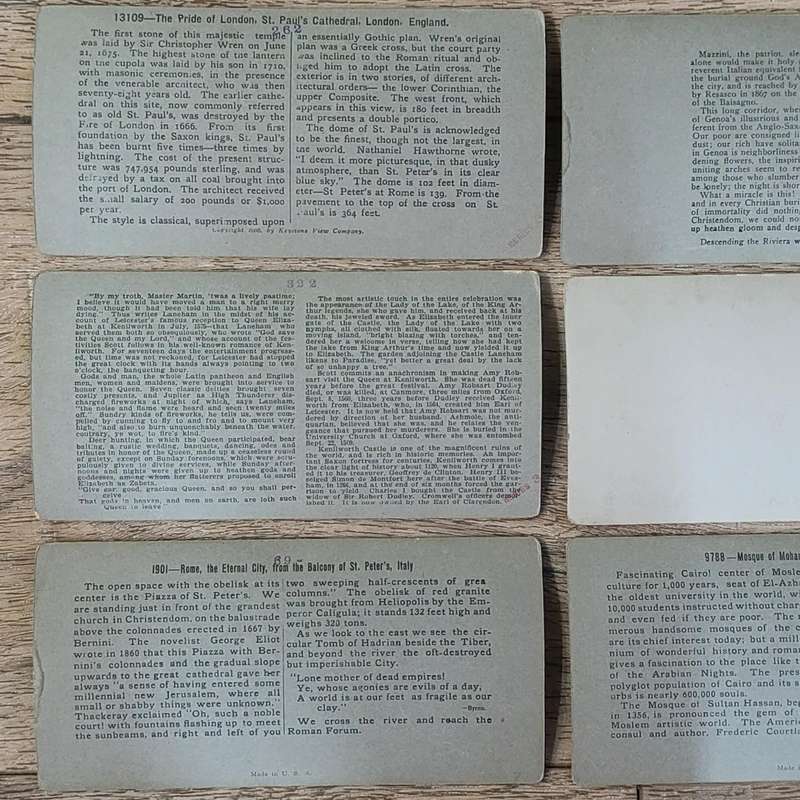 13109—The Pride of London, St. Paul's Cathedral, London, England.
262
The first stone of this majestic temple
was laid by Sir Christopher Wren on June
21, 1675. The highest stone of the lantern
on the cupola was laid by his son in 1710,
with masonic ceremonies, in the presence
of the venerable architect, who was then
seventy-eight years old. The earlier cathe-
dral on this site, now commonly referred
to as old St. Paul's, was destroyed by the
Fire of London in 1666. From its first
foundation by the Saxon kings, St. Paul's
has been burnt five times—three times by
lightning. The cost of the present struc-
ture was 747,954 pounds sterling, and was
defrayed by a tax on all coal brought into
the port of London. The architect received
the small salary of 200 pounds or $1,000
per year.
The style is classical, superimposed upon
an essentially Gothic plan. Wren's original
plan was a Greek cross, but the court party
was inclined to the Roman ritual and ob-
liged him to adopt the Latin cross. The
exterior is in two stories, of different arch-
itectural orders— the lower Corinthian, the
upper Composite. The west front, which
appears in this view, is 180 feet in breadth
and presents a double portico.
The dome of St. Paul's is acknowledged
to be the finest, though not the largest, in
the world. Nathaniel Hawthorne wrote,
"I deem it more picturesque, in that dusky
atmosphere, than St. Peter's in its clear
blue sky." The dome is 102 feet in diam-
eter—St Peter's at Rome is 139. From the
pavement to the top of the cross on St.
Paul's is 364 feet.
Copyright by Keystone View Company.
Mazzini, the patriot,
alone would make it holy
reverent Italian equivalent
the burial ground God's
the city, and is reached by
by Resasco in 1867 on the
of the Baisagno.
This long corridor, wher
of Genoa's illustrious and
ferent from the Anglo-Sax
Our poor are consigned
dust; our rich have solita
in Genoa is neighborliness
dening flowers, the inspiri
uniting arches seem to re
among those who slumber
be lonely; the night is shor
What a miracle is this!
and in every Christian buri
of immortality did nothin
Christendom, we could no
up heathen gloom and desp
Descending the Riviera w
322
"By my troth, Master Martin, 'twas a lively pastime;
I believe it would have moved a man to a right merry
mood, though it had been told him that his wife lay
dying." Thus writes Laneham in the midst of his ac-
count of Leicester's famous reception to Queen Eliza-
beth at Kenilworth in July, 1575—that Laneham who
served them both so obsequiously, who wrote "God save
the Queen and my Lord," and whose account of the fes-
tivities Scott follows in his well-known romance of Ken-
ilworth. For seventeen days the entertainment progress-
ed, but time was not reckoned, for Leicester had stopped
the great clock with its hands always pointing to two
o'clock, the banqueting hour.
Gods and man, the whole Latin pantheon and English
men, women and maidens, were brought into service to
honor the Queen. Seven classic deities brought seven
costly presents, and Jupiter as High Thunderer dis-
charged fireworks at night of which, says Laneham,
"the noise and flame were heard and seen twenty miles
off." Sundry kinds of fireworks, he tells us, were com-
pelled by cunning to fly to and fro and to mount very
high, "and also to burn unquenchably beneath the water,
contrary, ye wot, to fire's kind."
Deer hunting, in which the Queen participated, bear
baiting, a rustic wedding, banquets, dancing, odes and
tributes in honor of the Queen, made up a ceaseless round
of gaiety, except on Sunday forenoons, which were scru-
pulously given to divine services, while Sunday after-
noons and nights were given up to heathen gods and
goddesses, among whom her flatterers proposed to enroll
Elizabeth as Zabeta.
"Give ear, good, gracious Queen, and so you shall per-
ceive
That gods in heaven, and men on earth, are loth such
Queen to leave"
The most artistic touch in the entire celebration was
the appearance of the Lady of the Lake, of the King Ar-
thur legends, she who gave him, and received back at his
death, his jeweled sword. As Elizabeth entered the inner
gate of the Castle, the Lady of the Lake with two
nymphs, all clothed with silk, floated towards her on a
moving island, "bright blazing with torches," and ten-
dered her a welcome in verse, telling how she had kept
the lake from King Arthur's time and now yielded it up
to Elizabeth. The garden adjoining the Castle Laneham
likens to Paradise, "yet better a great deal by the lack
of so unhappy a tree."
Scott commits an anachronism in making Amy Rob-
sart visit the Queen at Kenilworth. She was dead fifteen
years before the great festival. Amy Robsart Dudley
died, or was killed, at Cumnore, three miles from Oxford,
Sept. 8, 1560, three years before Dudley received Ken-
worth from Elizabeth, who, in 1564, created him Earl of
Leicester. It is now held that Amy Robsart was not mur-
dered by direction of her husband. Ashmole, the anti-
quarian, believed that she was, and he relates the ven-
geance that pursued her murderers. She is buried in the
University Church at Oxford, where she was entombed
Sept. 22, 1560.
Kenilworth Castle is one of the magnificent ruins of
the world, and is rich in historic memories. An impor-
tant Saxon fortress for centuries, Kenilworth comes into
the clear light of history about 1120, when Henry I gran-
ted it to his treasurer, Geoffrey de Clinton. Henry III be-
seiged Simon de Montfort here after the battle of Eves-
ham, in 1266, and at the end of six months forced the gar-
rison to yield. Charles I bought the Castle from the
widow of Sir Robert Dudley. Cromwell's officers demol-
ished it. It is now owned by the Earl of Clarendon.
69-
1901—Rome, the Eternal City, from the Balcony of St. Peter's, Italy
The open space with the obelisk at its
center is the Piazza of St. Peter's. We
are standing just in front of the grandest
church in Christendom, on the balustrade
above the colonnades erected in 1667 by
Bernini. The novelist George Eliot
wrote in 1860 that this Piazza with Ber-
nini's colonnades and the gradual slope
upwards to the great cathedral gave her
always "a sense of having entered some
millennial new Jerusalem, where all
small or shabby things were unknown."
Thackeray exclaimed "Oh, such a noble
court! with fountains flashing up to meet
the sunbeams, and right and left of you
two sweeping half-crescents of grea
columns." The obelisk of red granite
was brought from Heliopolis by the Em-
peror Caligula; it stands 132 feet high and
weighs 320 tons.
As we look to the east we see the cir-
cular Tomb of Hadrian beside the Tiber,
and beyond the river the oft-destroyed
but imperishable City.
"Lone mother of dead empires!
Ye, whose agonies are evils of a day,
A world is at our feet as fragile as our
clay."
—Byron.
We cross the river and reach the
Roman Forum.
Made in U. S. A.
9788—Mosque of Moham
Fascinating Cairo! center of Mosle
culture for 1,000 years, seat of El-Azh
the oldest university in the world, wi
10,000 students instructed without char
and even fed if they are poor. The n
merous handsome mosques of the c
are its chief interest today; but a mill
nium of wonderful history and roman
gives a fascination to the place like t
of the Arabian Nights. The prese
polyglot population of Cairo and its s
urbs is nearly 600,000 souls.
The Mosque of Sultan Hassan, be
in 1356, is pronounced the gem of
Moslem artistic world. The Ameri
consul and author, Frederic Courtl
Made in